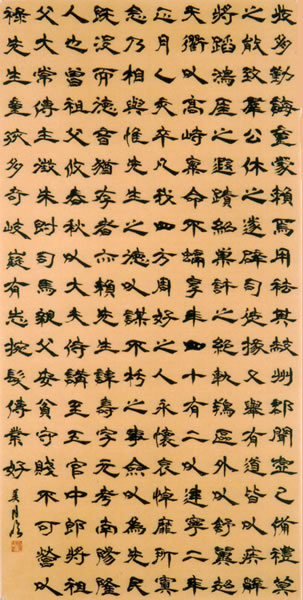 勤誨童蒙賴焉用祛其蔽州郡聞德虛己備禮莫
之能致羣公休之遂辟司徒掾又舉有道皆以疾辭
將蹈鴻涯之遐蹟紹巢許之絕軌翔區外以舒翼超
天衢以高峙稟命不融享年四十有二以建寧二年
正月乙亥卒凡我四方同好之人永懷哀悼靡所寘
念乃相與惟先生之德以謀不朽之事僉以為先民
既沒而德音猶存者亦賴先生諱壽字元考南陽隆
人也曾祖父攸春秋以大夫侍講至五官中郎將祖
父大常傅士徵朱爵司馬親父安貧守賤不可營以
祿先生童孩多奇岐嶷有志捥髮傳業好